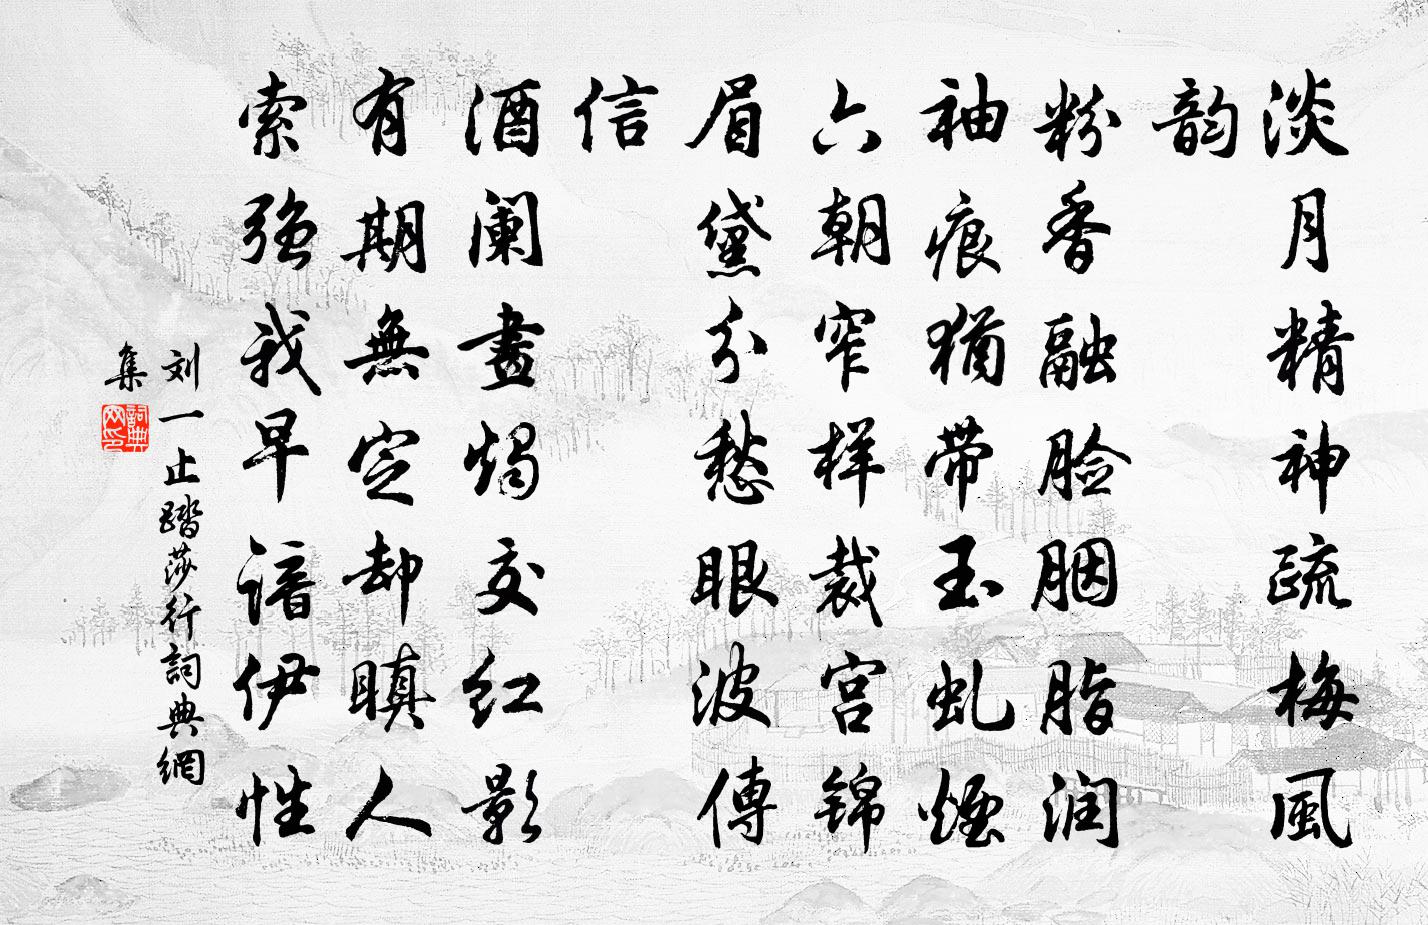 淡月精神疏梅風
韵
粉香融脸胭脂润
袖痕犹带玉虬煙
六朝窄样裁宫锦
眉黛分愁眼波傳
信
酒阑畫烛交红影
有期無定却瞋人
索强我早谙伊性
刘一止踏莎行詞典網
集
詞典网印